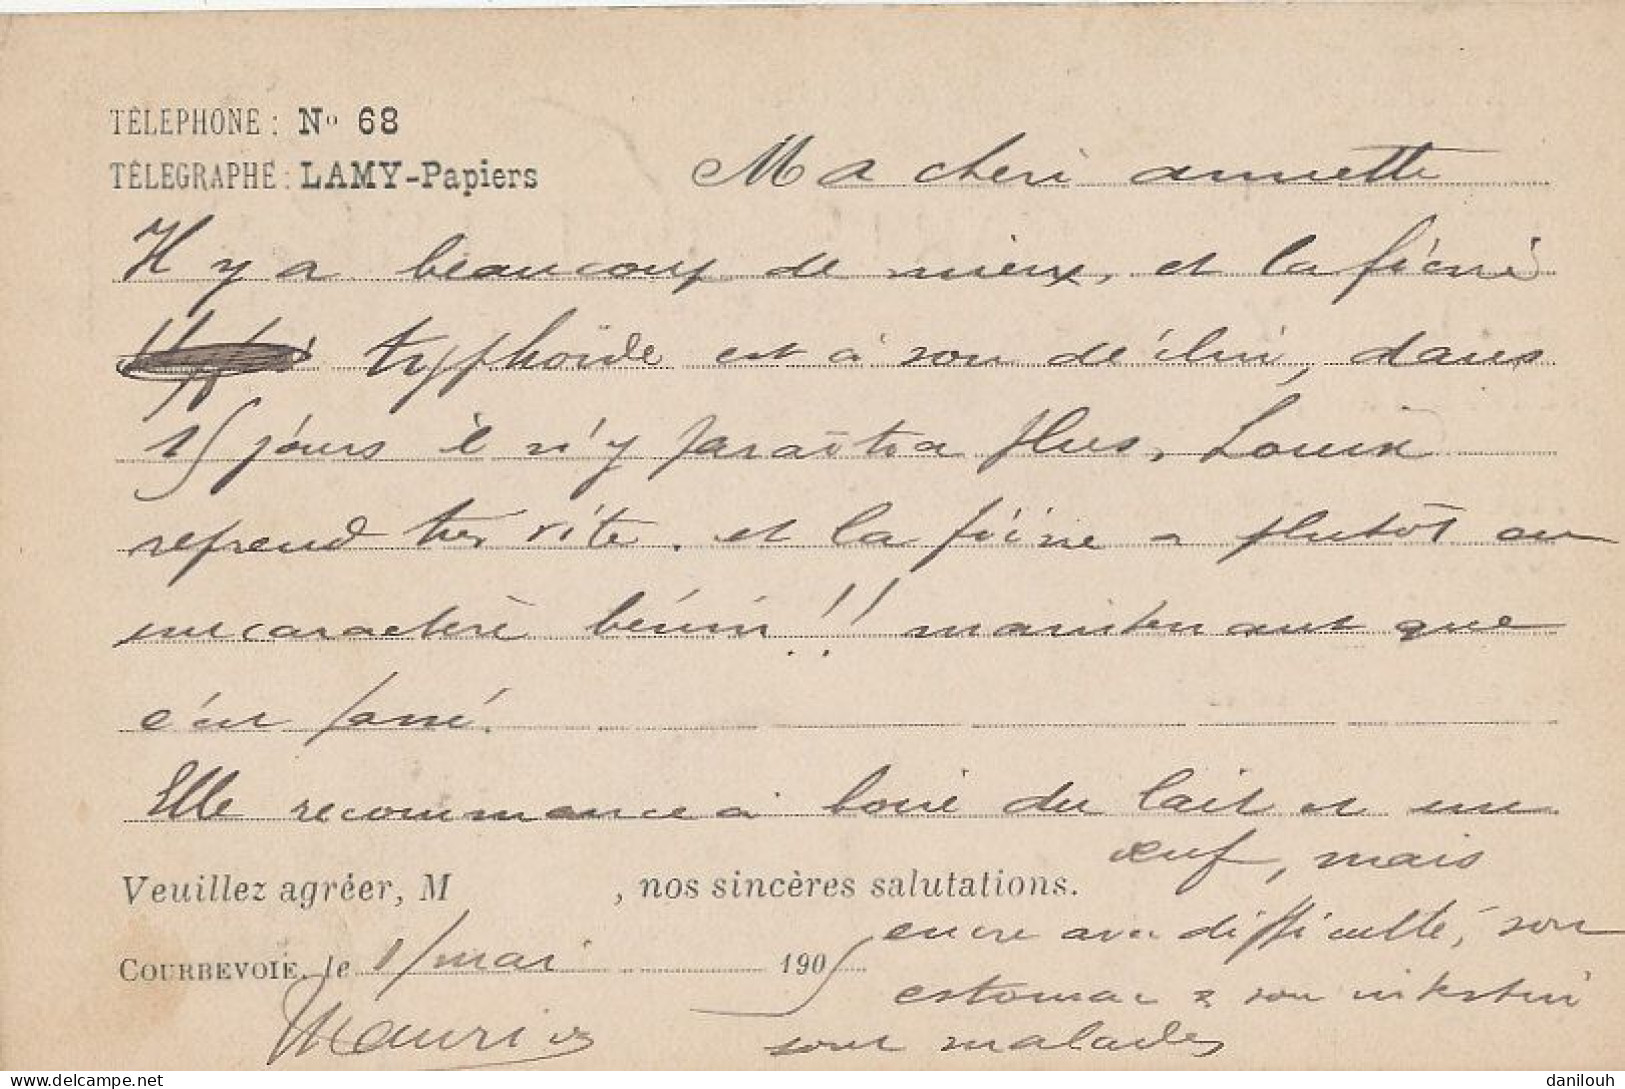 TÉLÉPHONE : Nº 68
TÉLÉGRAPHE : LAMY-Papiers
Ma cheri annette
Il y a beaucoup de mieux, et la fièvre
typhoïde est à son déclin, dans
15 jours il n'y paraîtra plus, Louise
reprend très vite. et la fièvre a plutôt eu
un caractère bénin !! maintenant que
c'est passé.
Elle recommence à boire du lait et un
œuf, mais
Veuillez agréer, M , nos sincères salutations.
encore avec difficulté, son
COURBEVOIE, le 1/mai 1905
estomac & son intestin
sont malades
Maurice
danilouh
delcampe.net